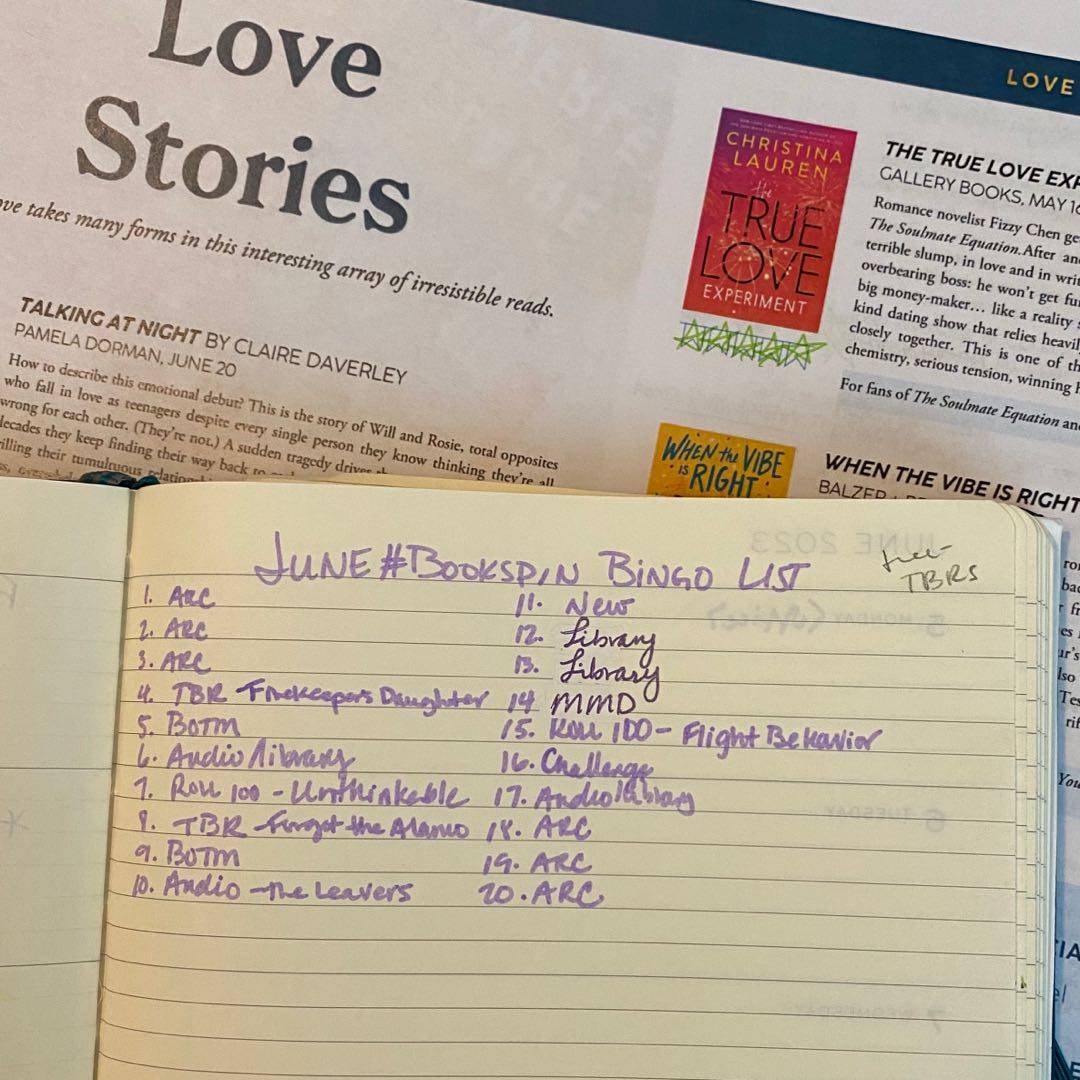 Love
Stories
ve takes many forms in this interesting array of irresistible reads.
TALKING AT NIGHT BY CLAIRE DAVERLEY
PAMELA DORMAN, JUNE 20
How to describe this emotional debut? This is the story of Will and Rosie, total opposites
who fall in love as teenagers despite every single person they know thinking they're all
wrong for each other. (They're not.) A sudden tragedy drives
decades they keep finding their way back to
illing their tumultuous relation
LOVE
CHRISTINA
LAUREN
the
TRUE
LOVE
EXPERIMENT
THE TRUE LOVE EXP
GALLERY BOOKS, MAY 16
Romance novelist Fizzy Chen ge
The Soulmate Equation. After an
terrible slump, in love and in writ
overbearing boss: he won't get fu
big money-maker... like a reality
kind dating show that relies heavil
closely together. This is one of th
chemistry, serious tension, winning
For fans of The Soulmate Equation and
WHEN the VIBE
IS RIGHT
WHEN THE VIBE IS RIGHT
JUNE #BOOKSPIN BINGO LIST
TBRS
1. ARC
2. ARC
3. ARC
4. TBR - Firekeepers Daughter
5. BOTM
6. Audio library
7. Roll 100 - Unthinkable
8. TBR - Forget the Alamo
9. BOTM
10. Audio - the Leavers
11. New
12. Library
13. Library
14 MMD
15. Roll 100 - Flight Behavior
16. Challenge
17. Audio library
18. ARC
19. ARC
20. ARC